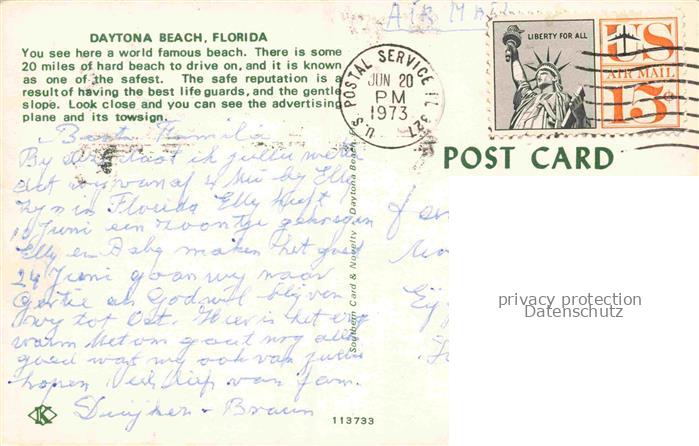 DAYTONA BEACH, FLORIDA
You see here a world famous beach. There is some
20 miles of hard beach to drive on, and it is known
as one of the safest. The safe reputation is a
result of having the best lifeguards, and the gentle
slope. Look close and you can see the advertising
plane and its towsign.
AIR MAIL
U.S. POSTAL SERVICE FL 327
JUN 20
PM
1973
LIBERTY FOR ALL
US
AIR MAIL
13¢
POST CARD
Beste Familie
By deze laat ik jullie weten
dat wy vanaf 4 Mei by Elly
zyn in Florida Elly heeft
10 Juni een zoontje gekregen
Elly en Baby maken het goed
24 Juni gaan wy naar
Gertie als God wil blyven
wy tot Oct. Hier is het erg
warm Met ons gaat nog alles
goed wat wy ook van jullie
hopen Veel liefs van fam.
- Braun
Southern Card & Novelty Daytona Beach
113733
K
privacy protection
Datenschutz